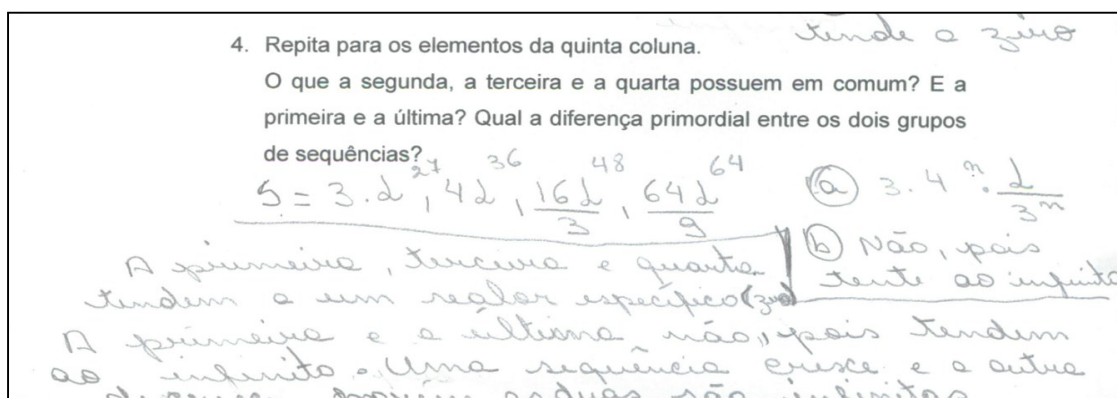 tende a zero
4. Repita para os elementos da quinta coluna.
O que a segunda, a terceira e a quarta possuem em comum? E a
primeira e a última? Qual a diferença primordial entre os dois grupos
de sequências?
27 36 48 64
S = 3.d, 4d, 16d/3, 64d/9
(a) 3.4ⁿ.d/3ⁿ
(b) Não, pois
tente ao infinito
A primeira, terceira e quarta
tendem a um específico (zero)
A primeira e a última não, pois tendem
ao infinito. Uma sequência cresce e a outra
porém as duas são infinitas